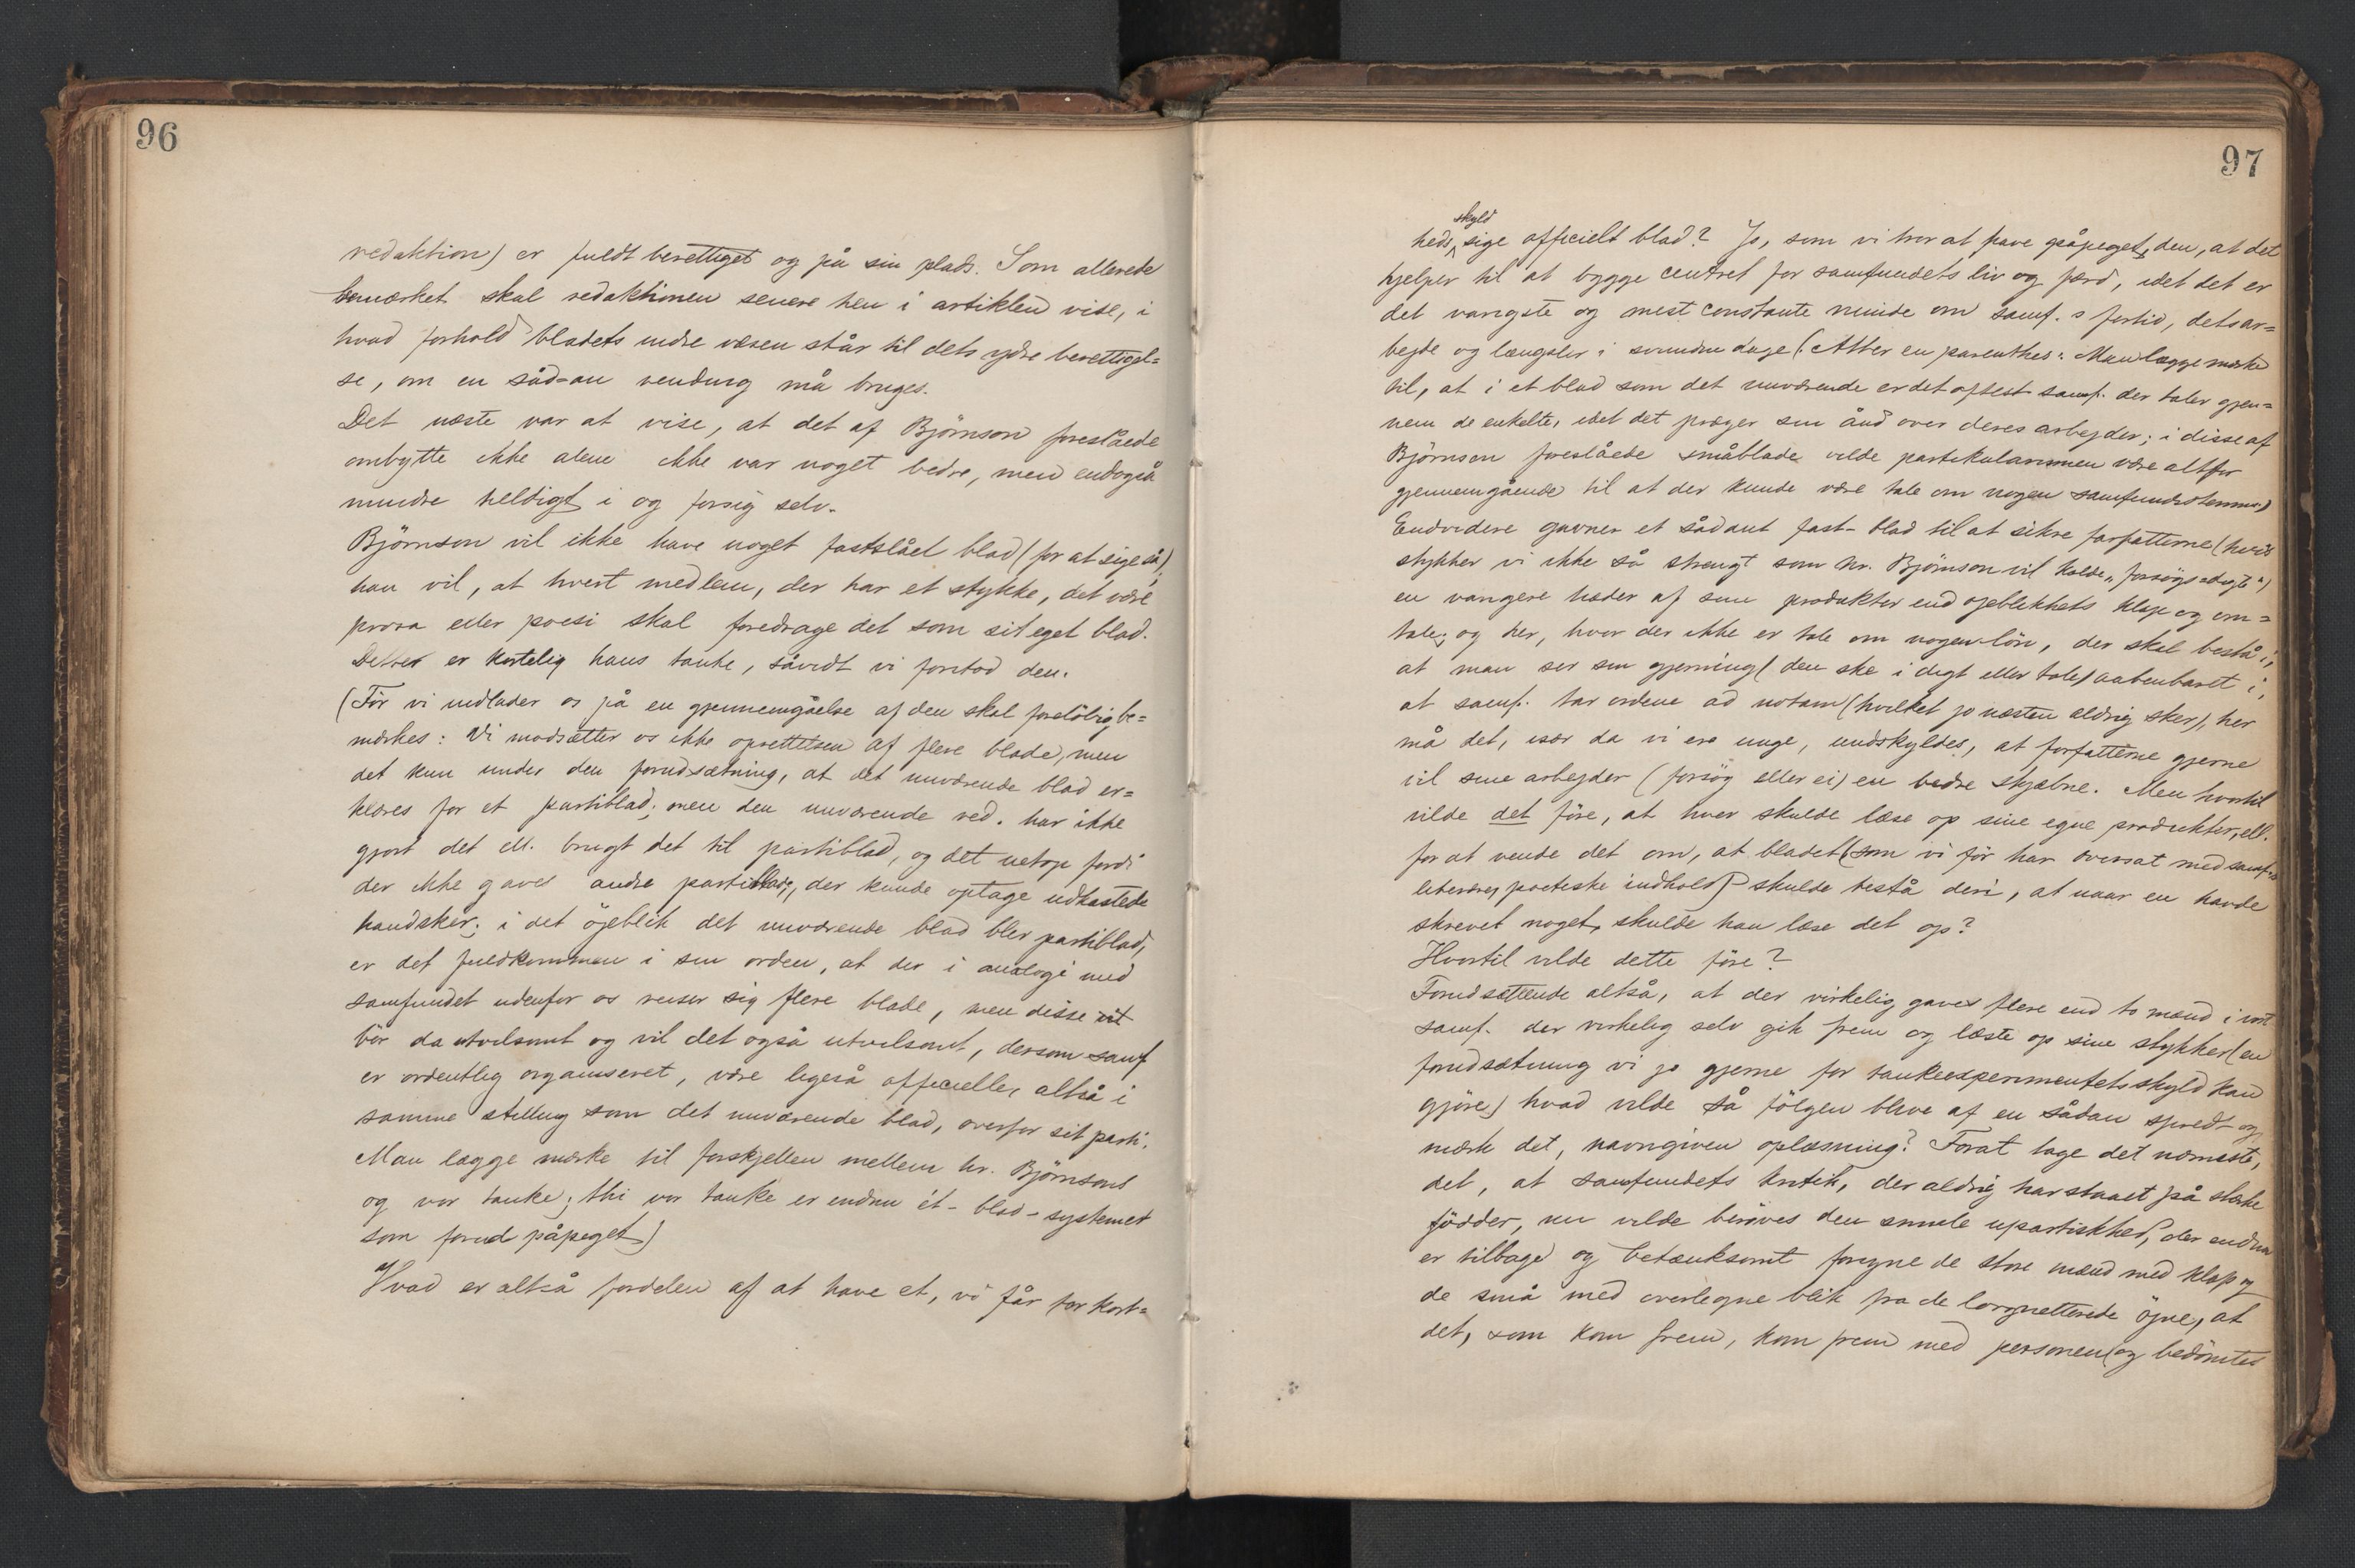 96
redaktion) er fuldt berettiget og på sin plads. Som allerede
bemærket skal redaktionen senere hen i artiklen vise, i
hvad forhold bladets indre væsen står til dets ydre berettigel=
se, om en såd=an vending må bruges.
Det næste var at vise, at det af Björnson foreslåede
ombytte ikke alene ikke var noget bedre, men endogså
mindre heldigt i og forsig selv.
Björnson vil ikke have noget fastslået blad (for at sige så),
han vil, at hvert medlem, der har et stykke, det være
prosa eller poesi skal foredrage det som sit eget blad.
Dette er kortelig hans tanke, såvidt vi forstod den.
(För vi indlader os på en gjennemgåelse af den skal forelöbig be=
mærkes: Vi modsætter os ikke oprettelsen af flere blade, men
det kun under den forudsætning, at det nuværende blad er=
klæres for et partiblad; men den nuværende red. har ikke
gjort det ell. brugt det til partiblad, og det netop fordi
der ikke gaves andre partiblade, der kunde optage udkastede
handsker; i det öjeblik det nuværende blad blev partiblad,
er det fuldkommen i sin orden, at der i analogi med
samfundet udenfor os reiser sig flere blade, men disse vil
bör da utvilsomt og vil det også utvilsomt, dersom samf
er ordentlig organiseret, være ligeså officielle, altså i
samme stilling som det nuværende blad, overfor sit parti.
Man lægge mærke til forskjellen mellem hr. Björnsons
og vor tanke; thi vor tanke er endnu ét-blad-systemet
som forud påpeget)
Hvad er altså fordelen af at have et, vi får for kort=
97
skyld
heds sige officielt blad? Jo, som vi tror at have påpeget, den, at det
hjelper til at bygge centret for samfundets liv og færd, idet det er
det varigste og mest constante minde om samf.s fortid, dets ar=
bejde og længsler i svundne dage (: Atter en parenthes: Man lægge mærke
til, at i et blad som det nuværende er det oftest samf. der taler gjen=
nem de enkelte, idet det præger sin ånd over deres arbejder; i disse af
Björnson foreslåede småblade vilde partikularismen være altfor
gjennemgående til at der kunde være tale om nogen samfundsstemme)
Endvidere gavner et sådant fast-blad til at sikre forfatterne (hvis
stykker vi ikke så strengt som hr. Björnson vil kalde "forsøgs=digte")
en varigere hæder af sine produkter end ojeblikkets klap og om=
tale; og her, hvor der ikke er tale om nogen lön, der skal bestå i,
at man ser sin gjerning (den ske i digt eller tale) aabenbaret i,
at samf. tar ordene ad notam (hvilket jo næsten aldrig sker), her
må det, især da vi ere unge, undskyldes, at forfatterne gjerne
vil sine arbejder (forsög eller ei) en bedre skjæbne. Men hvortil
vilde det före, at hver skulde læse op sine egne produkter, ell.
for at vende det om, at bladet (som vi för har oversat med samf.s
literære, poetiske indhold) skulde bestå deri, at naar en havde
skrevet noget, skulde han læse det op?
Hvortil vilde dette före?
Forudsættende altså, at der virkelig gaves flere end to mænd i vort
samf. der virkelig selv gik frem og læste op sine stykker (en
forudsætning vi jo gjerne for tankeexperimentets skyld kan
gjöre) hvad vilde så fölgen blive af en sådan spredt og,
mærk det, navngiven oplæsning? Forat tage det nærmeste,
det, at samfundets kritik, der aldrig har staaet på stærke
födder, nu vilde beröves den smule upartiskhed, der endnu
er tilbage og betænksomt forsyne de store mænd med klap og
de små med overlegne blik fra de lorgnetterede öjne, at
det, som kom frem, kom frem med personen (og bedömtes